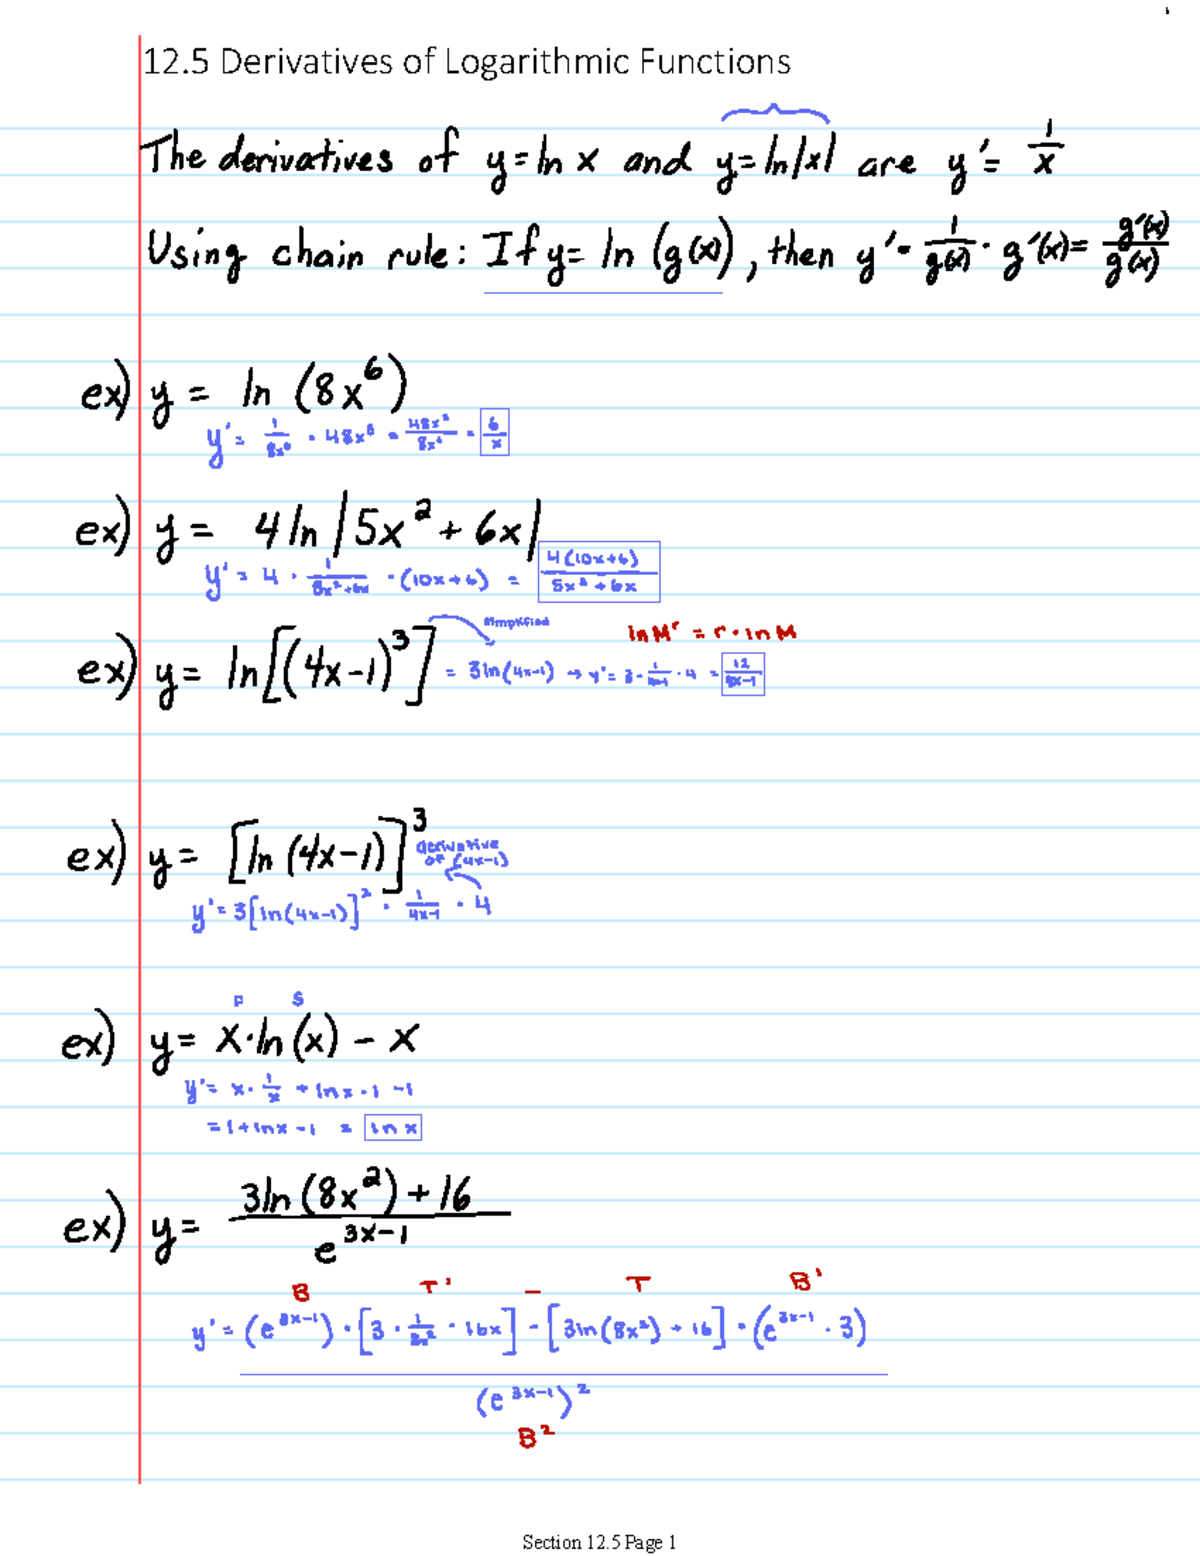 12.5 Derivatives of Logarithmic Functions
The derivatives of y = ln x and y = ln|x| are y' = 1/x
Using chain rule: If y = ln (g(x)), then y' = 1/g(x) · g'(x) = g'(x)/g(x)
ex) y = ln (8x^6)
y' = 1/8x^6 · 48x^5 = 48x^5/8x^6 = 6/x
ex) y = 4 ln |5x^2 + 6x|
y' = 4 · 1/5x^2+6x · (10x+6) = 4(10x+6)/5x^2+6x
simplified
ln M^r = r · ln M
ex) y = ln[(4x-1)^3] = 3 ln(4x-1) → y' = 3 · 1/4x-1 · 4 = 12/4x-1
ex) y = [ln (4x-1)]^3
derivative
of (4x-1)
y' = 3[ln(4x-1)]^2 · 1/4x-1 · 4
F S
ex) y = x·ln(x) - x
y' = x · 1/x + ln x · 1 - 1
= 1 + ln x - 1 = ln x
ex) y = 3ln(8x^2) + 16 / e^{3x-1}
B T' - T B'
y' = (e^{3x-1}) · [3 · 1/8x^2 · 16x] - [3ln(8x^2) + 16] · (e^{3x-1} · 3)
(e^{3x-1})^2
B^2
Section 12.5 Page 1